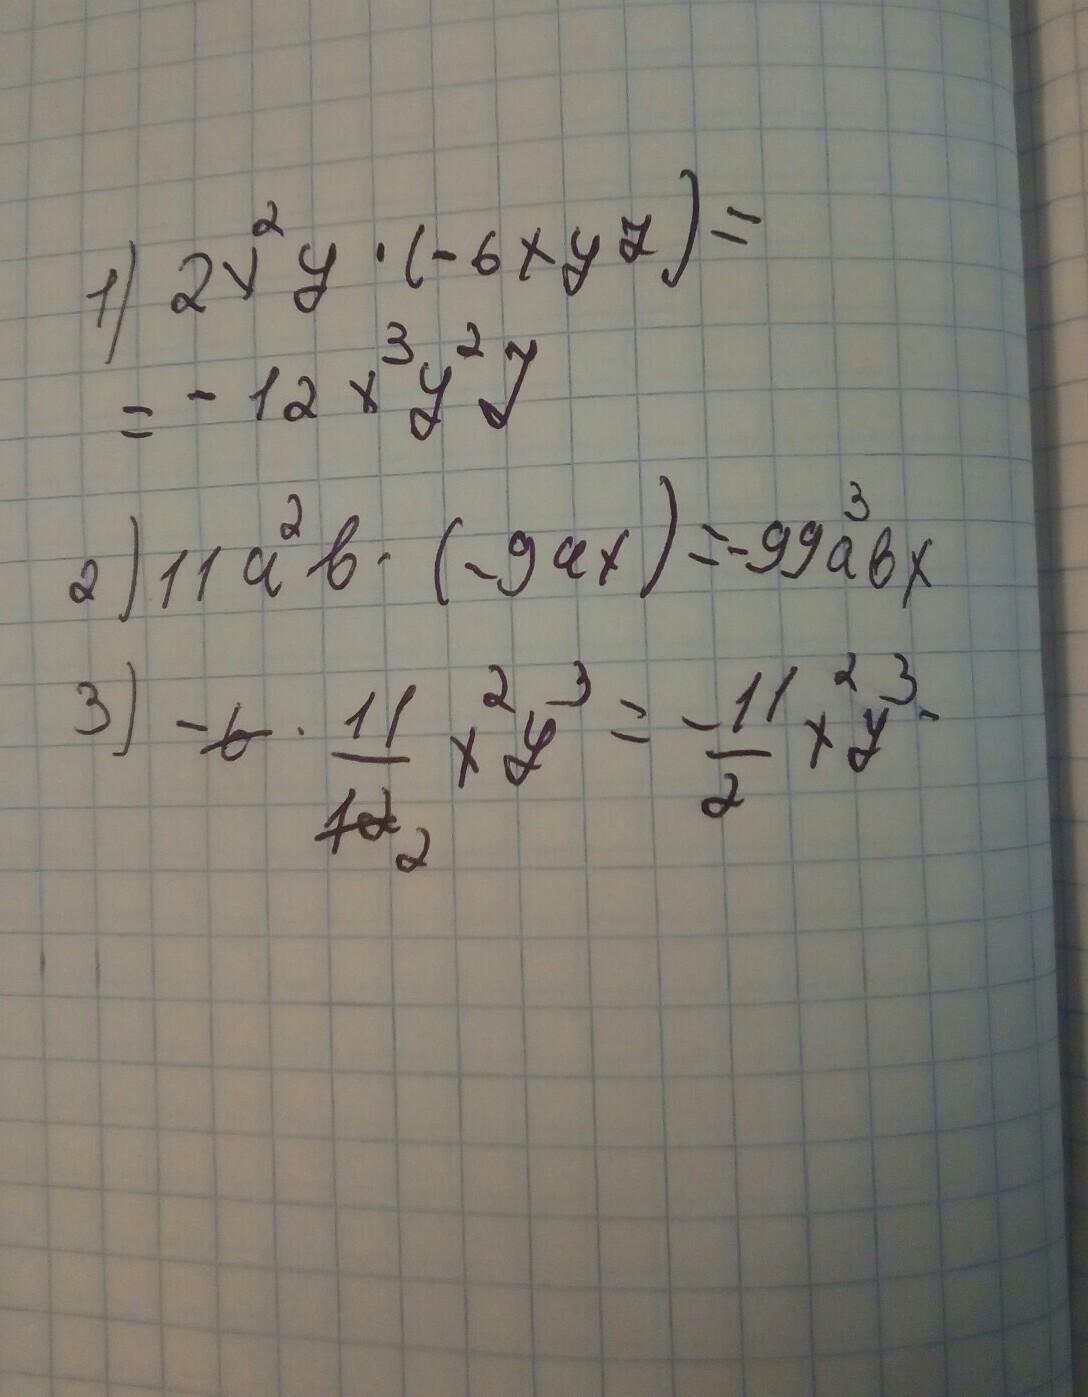 1) 2x² y · (-6xyz) =
= -12x³y²z
2) 11a²b · (-9ax) = -99a³bx
3) -6 · 11/12 2 x²y³ = -11/2 x²y³.